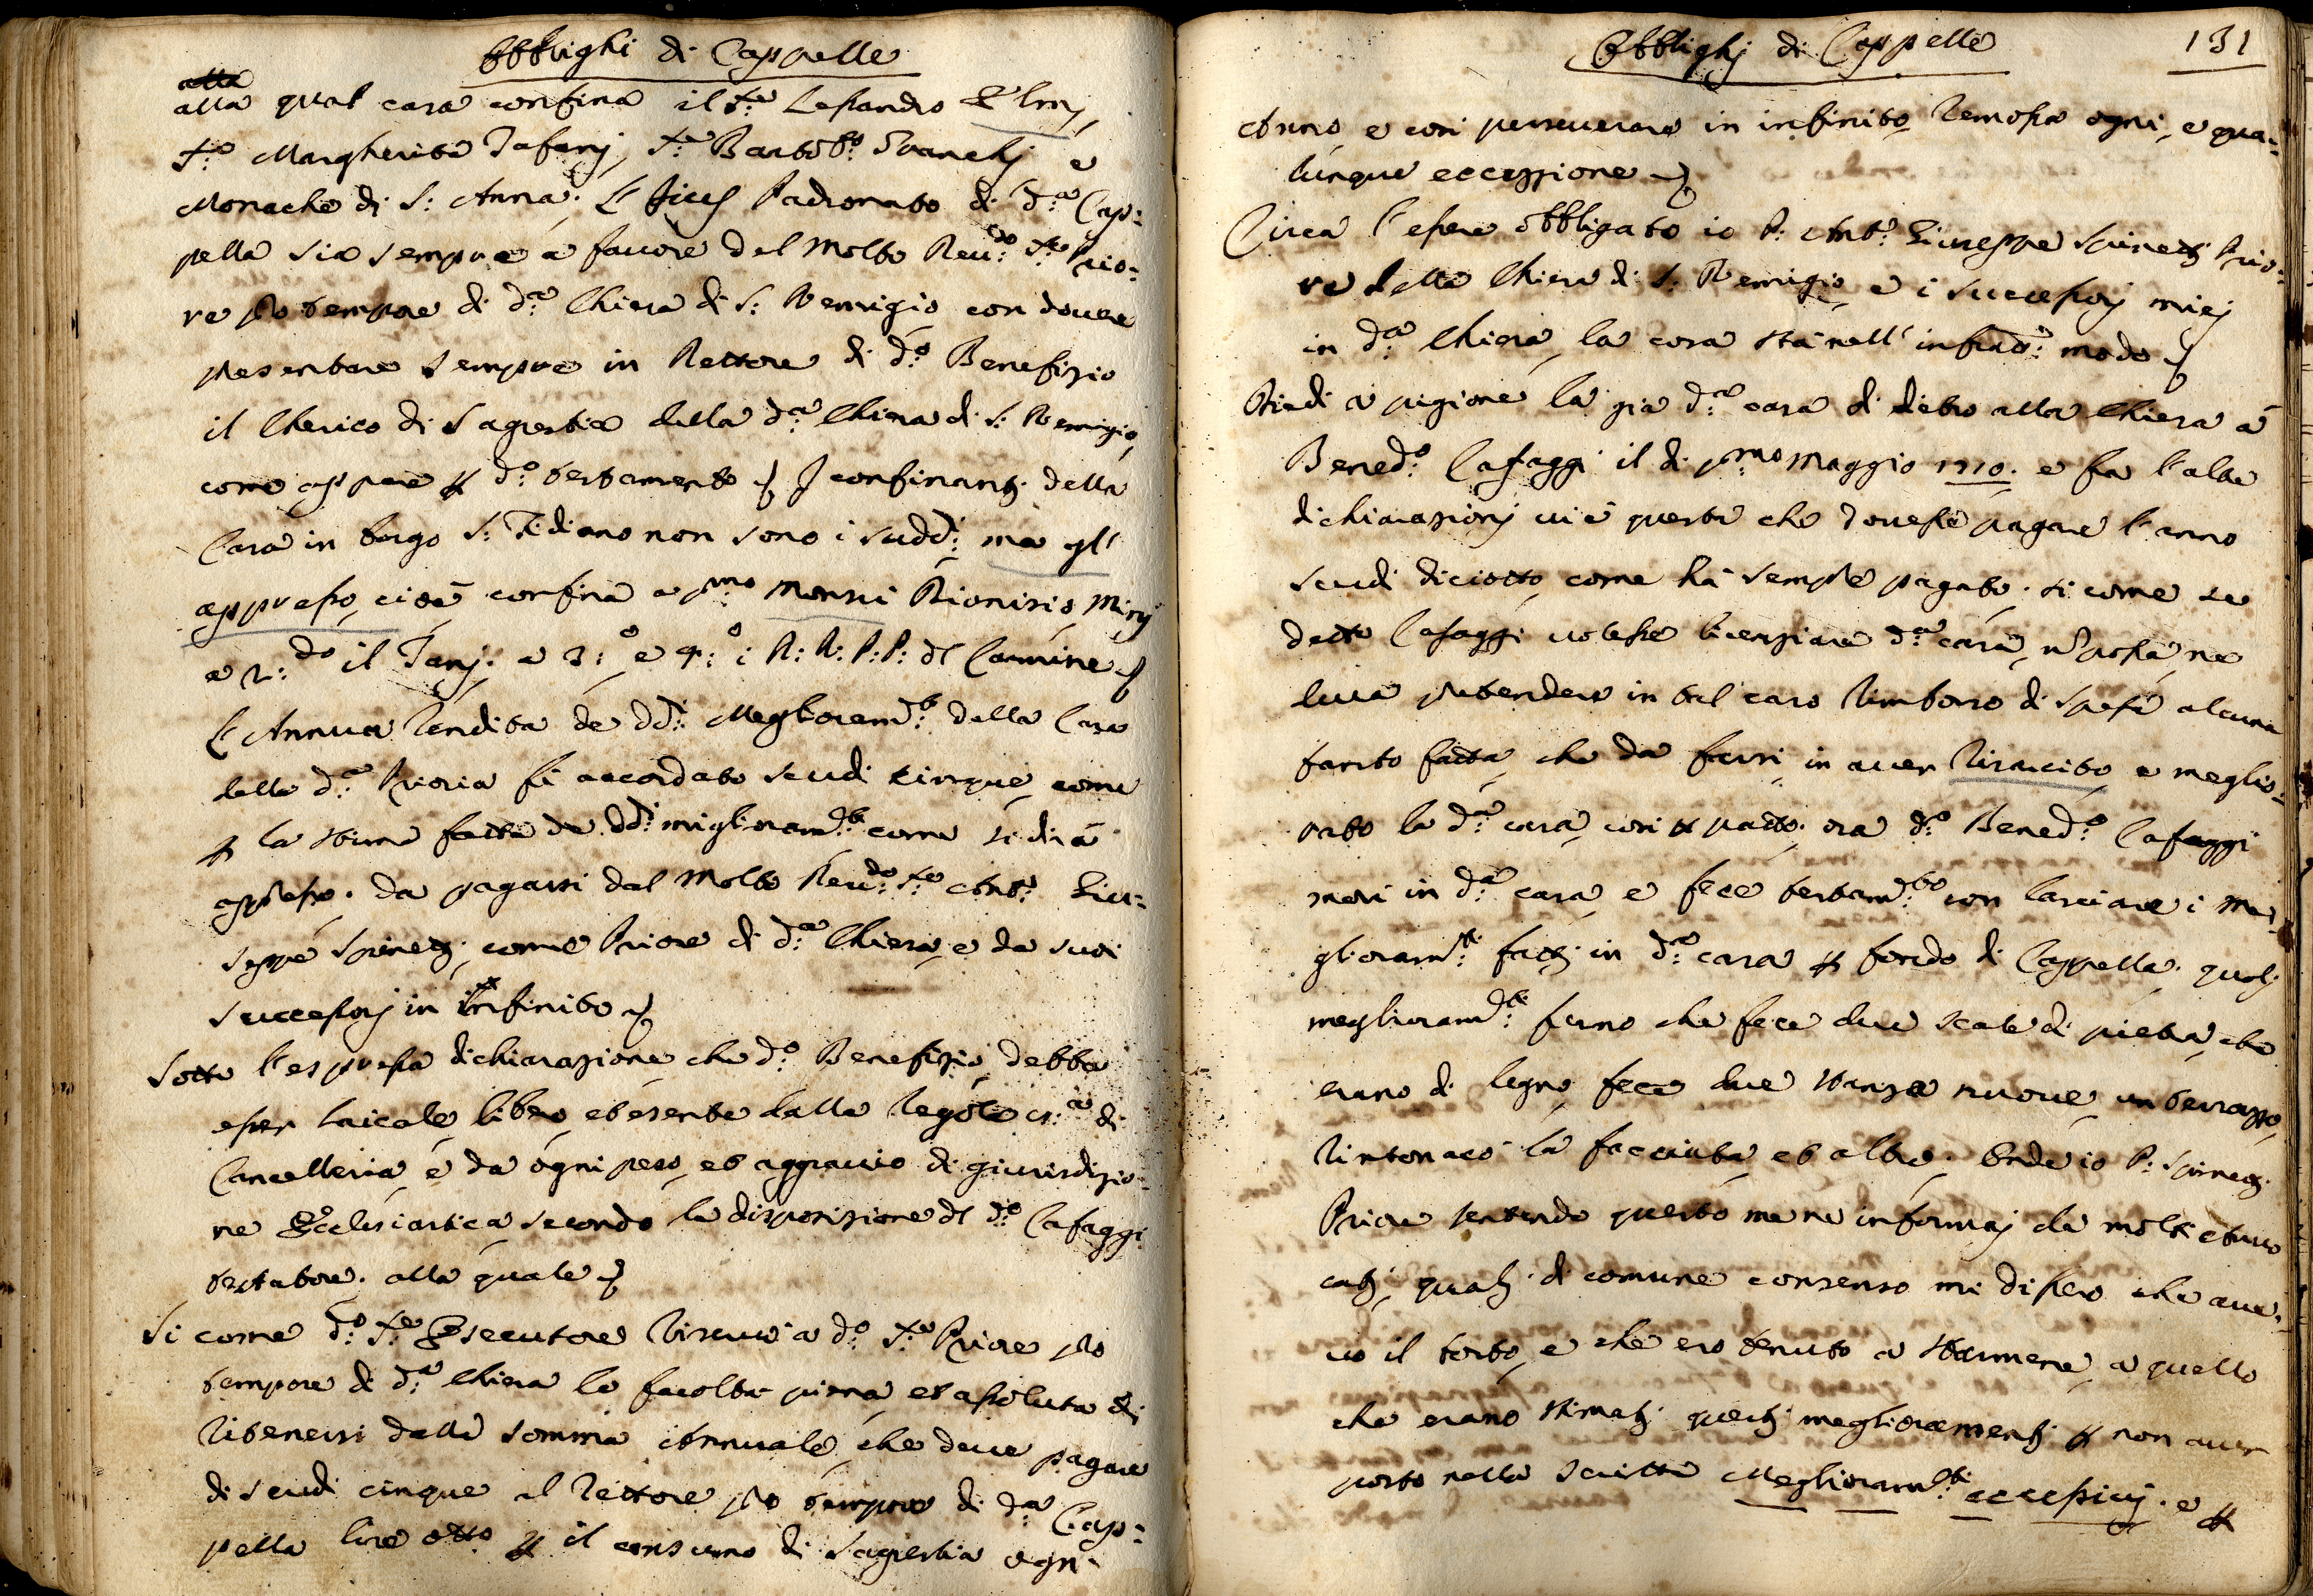 Obblighi di Cappelle
alla qual casa confina il S.re Lessandro
S.a Margherita Tafanj, S.re Bartol.o Franchj e
Monache di S: Anna. L'Jius Padronato di d.a Cap:
pella sia sempre à favore del Molto Reu:do S.re Prio:
re pro tempore di d.a Chiesa di S: Remigio con douere
presentare sempre in Rettore di d.o Benefizio
il Cherico di Sagrestia della d.a Chiesa di S: Remigio,
come appare p d.o testamento. I confinantj della
Casa in borgo S: Fidiano non sono i sudd.i ma gl'
appresso, cioè confina a p.mo Monsù Dionisio Minj
a 2:do il Tanj. a 3:o e 4:o i R: R: P: P: del Carmine
L'Annua Rendita de dd.i Meglioram.ti della Casa
della d.a Prioria fù accordato scudi cinque, come
p la stima fatta de dd.i miglioram.ti come si dirà
appresso. da pagarsi dal Molto Reu:do S.re Ant.o Giu:
seppe Spinetj, come Priore di d.a Chiesa, e da suoi
successorj in infinito
Sotto l'espressa dichiarazione che d.o Benefizio debba
esser laicale, libero, et esente dalle Regole di
Cancelleria, e da ogni peso, et aggrauio di giurisdizio:
ne Ecclesiastica secondo la disposizione del d.o Cafaggi
testatore. alla quale
Si come d.o S.re Esecutore riseruò a d.o S.re Priore pro
tempore di d.a Chiesa la facoltà piena, et assoluta di
ritenersi dalla somma Annuale, che deue pagare
di scudi cinque al Rettore pro tempore di d.a Cap:
pella lire otto p il consumo di Sagrestia ogn
Obblighj di Cappelle 131
Anno, e così perseuerare in infinito, Remossa ogni, e qua:
lunque eccezzione
Circa l'essere obbligato io P: Ant.o Giuseppe Spinetj Prio:
re della Chiesa di S: Remigio, e i successorj miej
in d.a Chiesa, la cosa stà nell' infrao: modo
Diedi a pigione la già d.a casa di dietro alla Chiesa à
Bened.o Cafaggi il dì p.mo Maggio 1710. e fra l'altre
dichiarazionj ui è questa che douesse pagare l'anno
scudi diciotto, come hà sempre pagato. si come se
detto Cafaggi uolesse licenziare d.a casa, n possa ne
deua pretendere in tal caso rimborso di spesa alcuna
tanto fatta, che da farsi, in auer e meglio:
rato la d.a casa, così p patto. ora d.o Bened.o Cafaggi
morì in d.a casa, e fece testam.to con lasciare i Me:
gliioram.ti fattj in d.a casa p fondo di Cappella. qualj
megliioram.ti furno che fece due scale di pietra, che
erano di legno, fece due stanze nuoue, un terrazzo,
rintonacò la facciata, et altro. Onde io P: Spinetj
Priore sentendo questo me ne informaj da molti Auuo
catj, qualj di comune consenso mi dissero che aue:
uo il torto, e che ero tenuto a starmene, a quello
che erano stimatj questj meglioramentj p non auer
posto nella scritta Megliioram.ti eccessiuj. e p